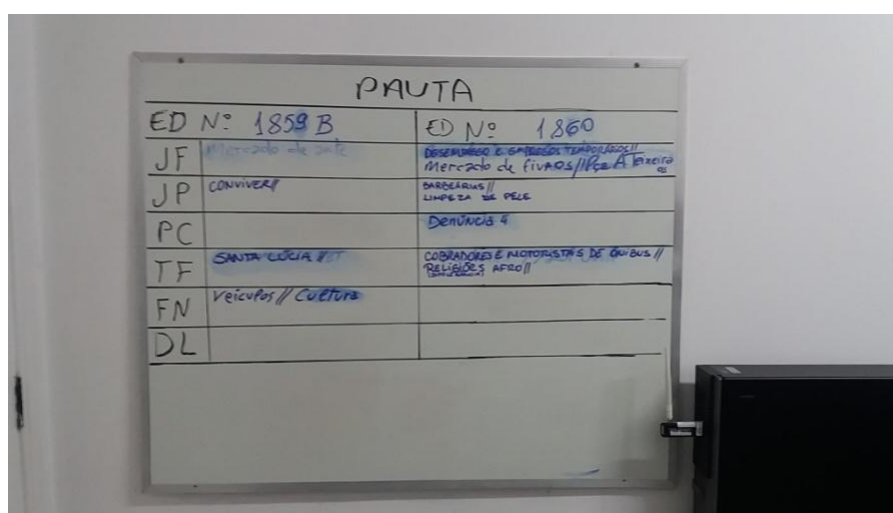 PAUTA
ED Nº 1859 B
ED Nº 1860
JF
Mercado de arte
DESEMPREGO E EMPREGOS TEMPORÁRIOS//
Mercado de LivROS//Pça A Teixeira
JP
CONVIVER//
BARBEARIAS//
LIMPEZA DE PELE
PC
Denúncia 4
TF
SANTA LÚCIA //
COBRADORES E MOTORISTAS DE ÔNIBUS //
RELIGIÕES AFRO//
FN
Veículos // Cultura
DL